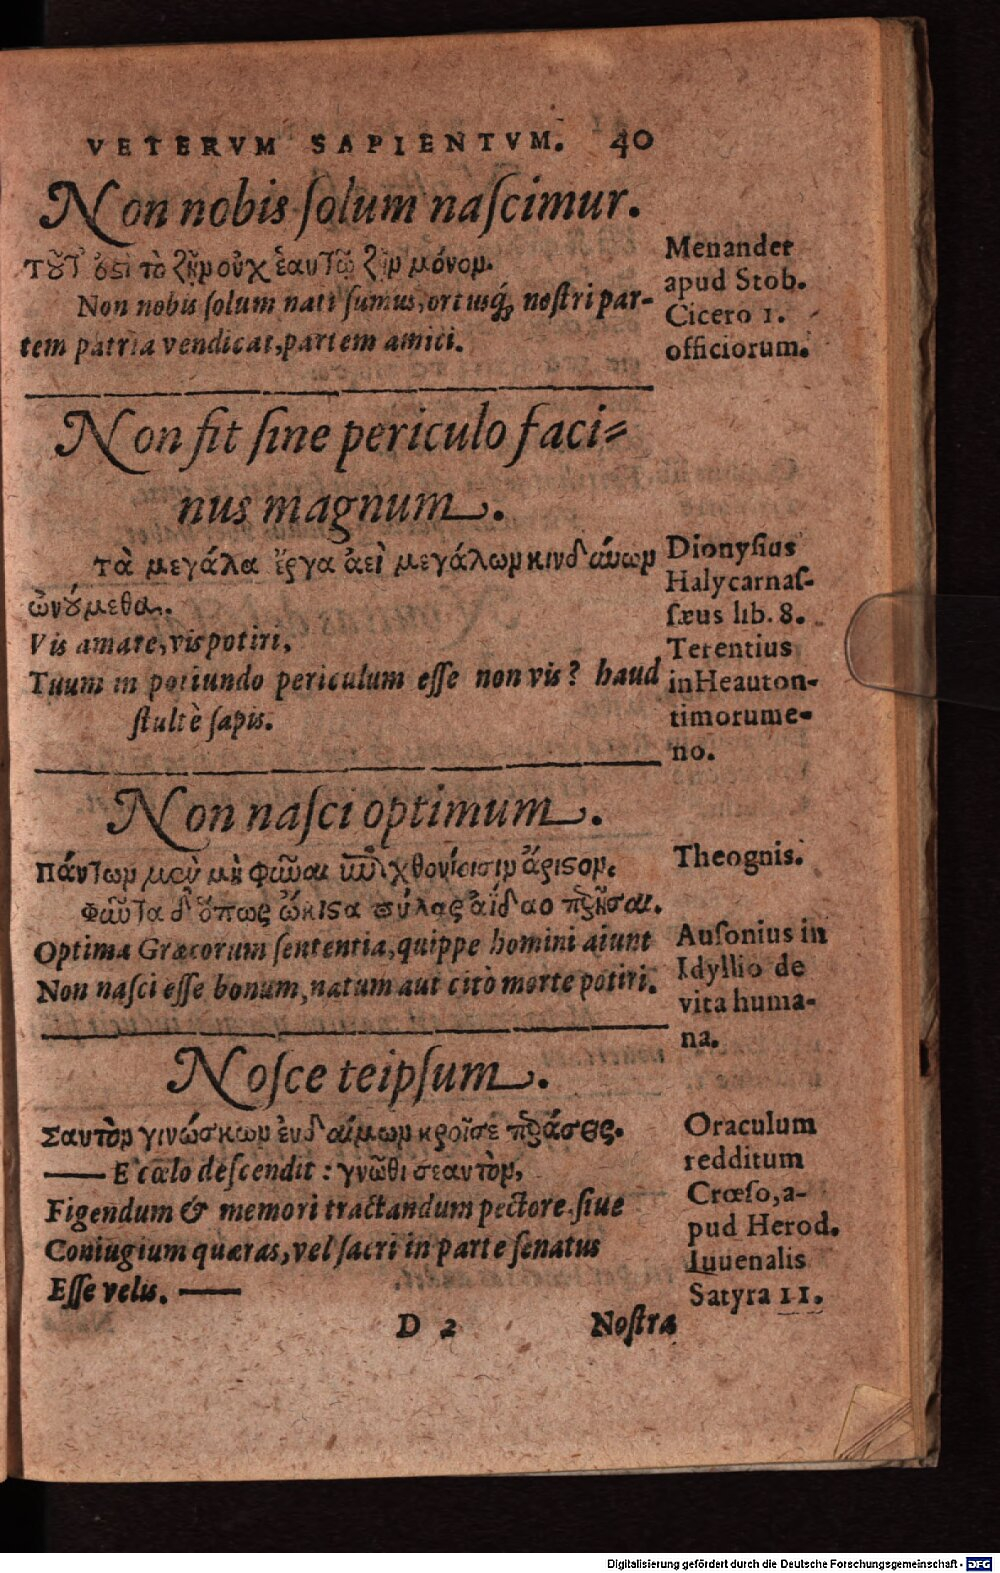 VETERVM SAPIENTVM. 40
Non nobis ſolum naſcimur.
τȢ͂τ' ἐστὶ τὸ ζῆν οὐχ ἑαυτῷ ζῇν μόνον.
Menander
apud Stob.
Non nobis ſolum nati ſumus, ortusq́; noſtri par-
tem patria vendicat, partem amici.
Cicero 1.
officiorum.
Non fit ſine periculo faci-
nus magnum.
τὰ μεγάλα ἔργα ἀεὶ μεγάλων κινδύνων
ὠνȢ́μεθα.
Dionyſius
Halycarnaſ-
ſæus lib. 8.
Vis amare, vis potiri,
Tuum in potiundo periculum eſſe non vis? haud
ſtultè ſapis.
Terentius
in Heauton-
timorume-
no.
Non naſci optimum.
πάντων μεν μὴ φῦναι ἐπιχθονίοισιν ἄριστον.
φύντα δ' ὅπως ὤκιστα πύλας ἀίδαο περῆσαι.
Theognis.
Optima Græcorum ſententia, quippe homini aiunt
Non naſci eſſe bonum, natum aut citò morte potiri.
Auſonius in
Idyllio de
vita huma-
na.
Noſce teipſum.
Σαυτὸν γινώσκων ἐυδαίμων κροῖσε περάσεις.
Oraculum
redditum
Crœſo, a-
pud Herod.
— E cœlo deſcendit: γνῶθι σεαυτὸν,
Figendum & memori tractandum pectore, ſiue
Coniugium quæras, vel ſacri in parte ſenatus
Eſſe velis. —
Iuuenalis
Satyra 11.
D 2 Noſtra
Digitalisierung gefördert durch die Deutsche Forschungsgemeinschaft - DFG